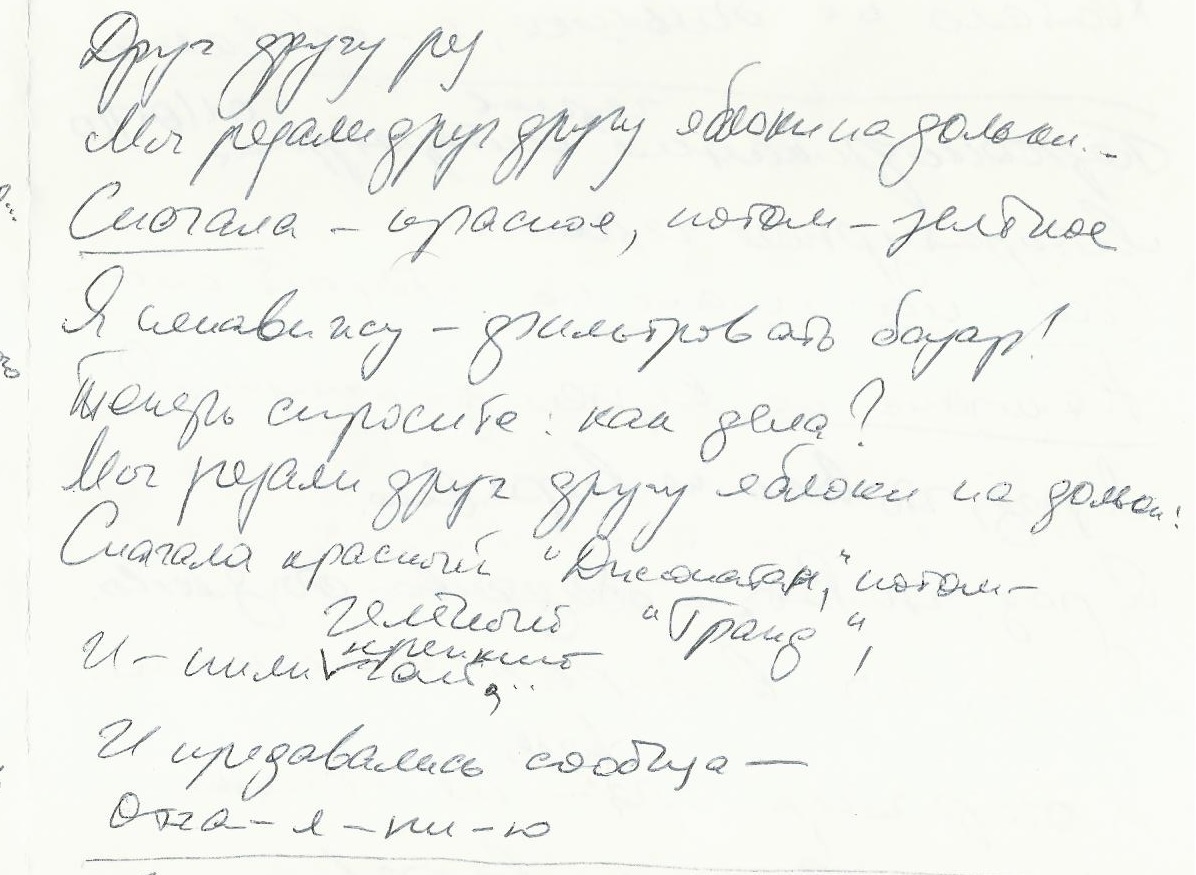 Друг другу ре
Мы резали друг другу яблоки на дольки...
Сначала – красное, потом – зелёное
Я ненавижу – фильтровать базар!
Теперь спросите: как дела?
Мы резали друг другу яблоки на дольки:
Сначала красный "Джонатан," потом –
зелёный "Гранд",
И – пили крепкий чай,...
И предавались сообща —
Отча – я – ни – ю